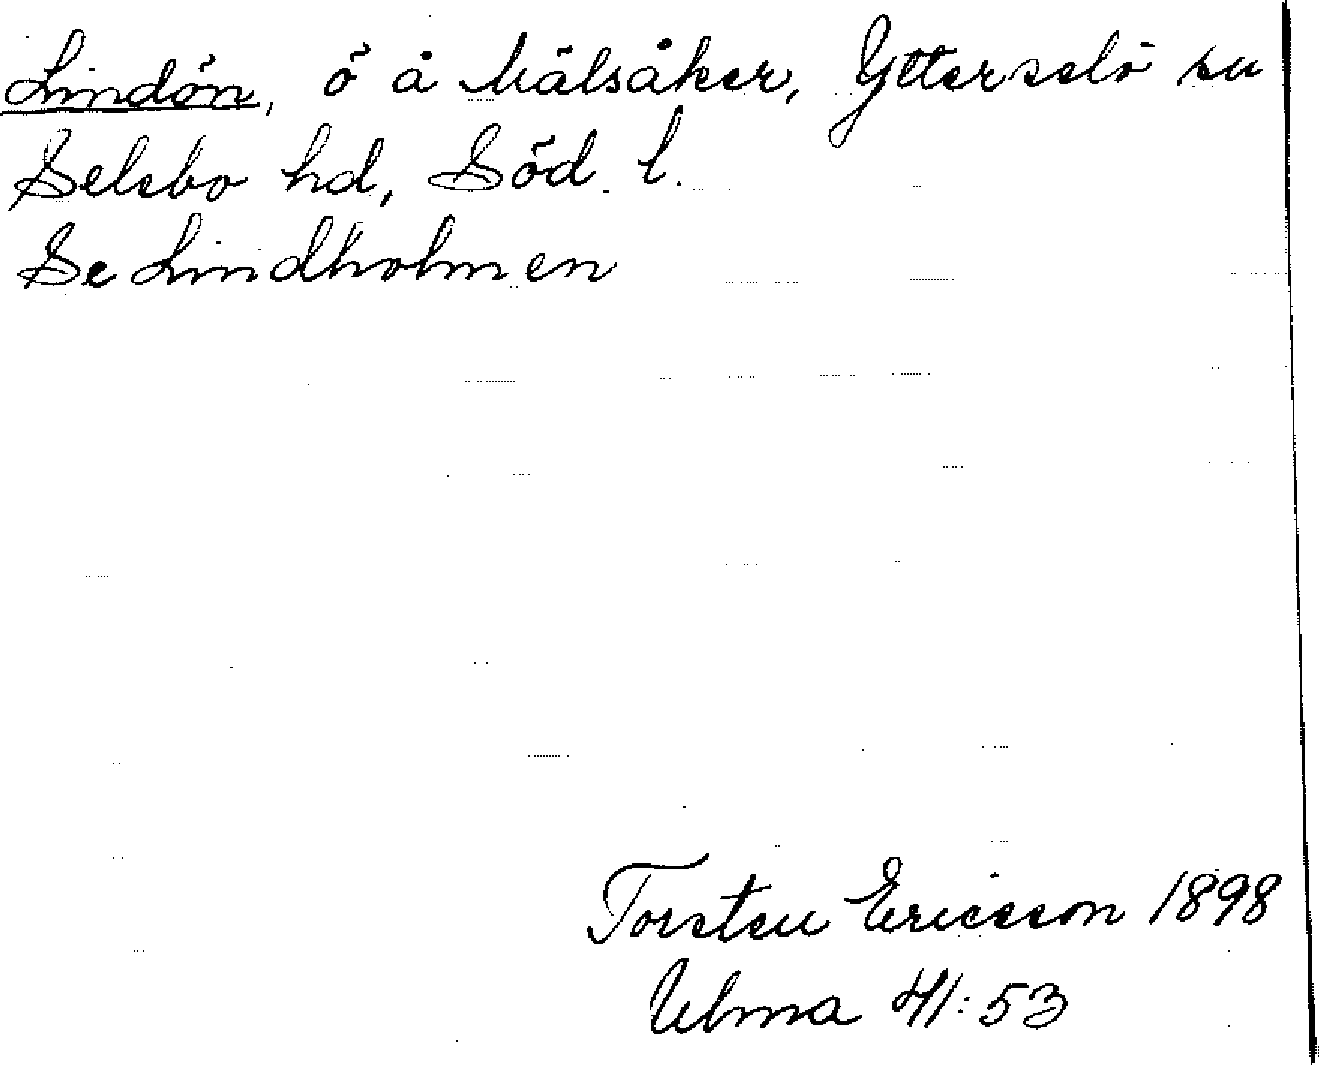 Lindön, ö å Mälsåker, Ytterselö sn
Selebo hd, Söd. l.
Se Lindholmen
Torsten Ericsson 1898
Ulma 41:53